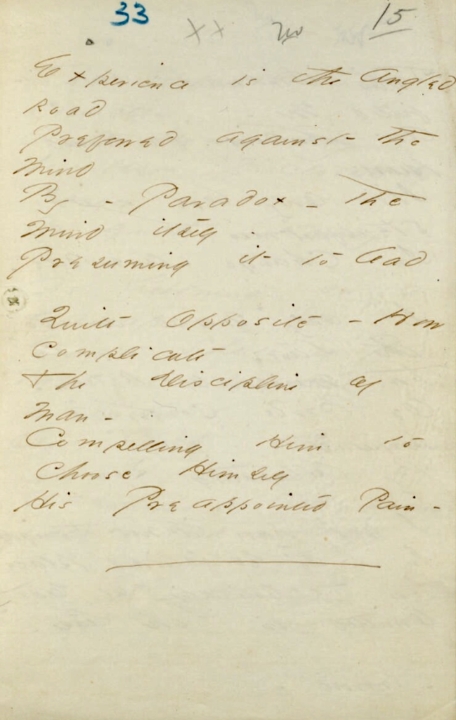 33 xx 15
Experience is the Angled
Road
Preferred against the
Mind
By - Paradox - The
Mind itself
Presuming it to lead
Quite Opposite - How
Complicate
The Discipline of
Man -
Compelling Him to
Choose Himself
His Preappointed Pain -